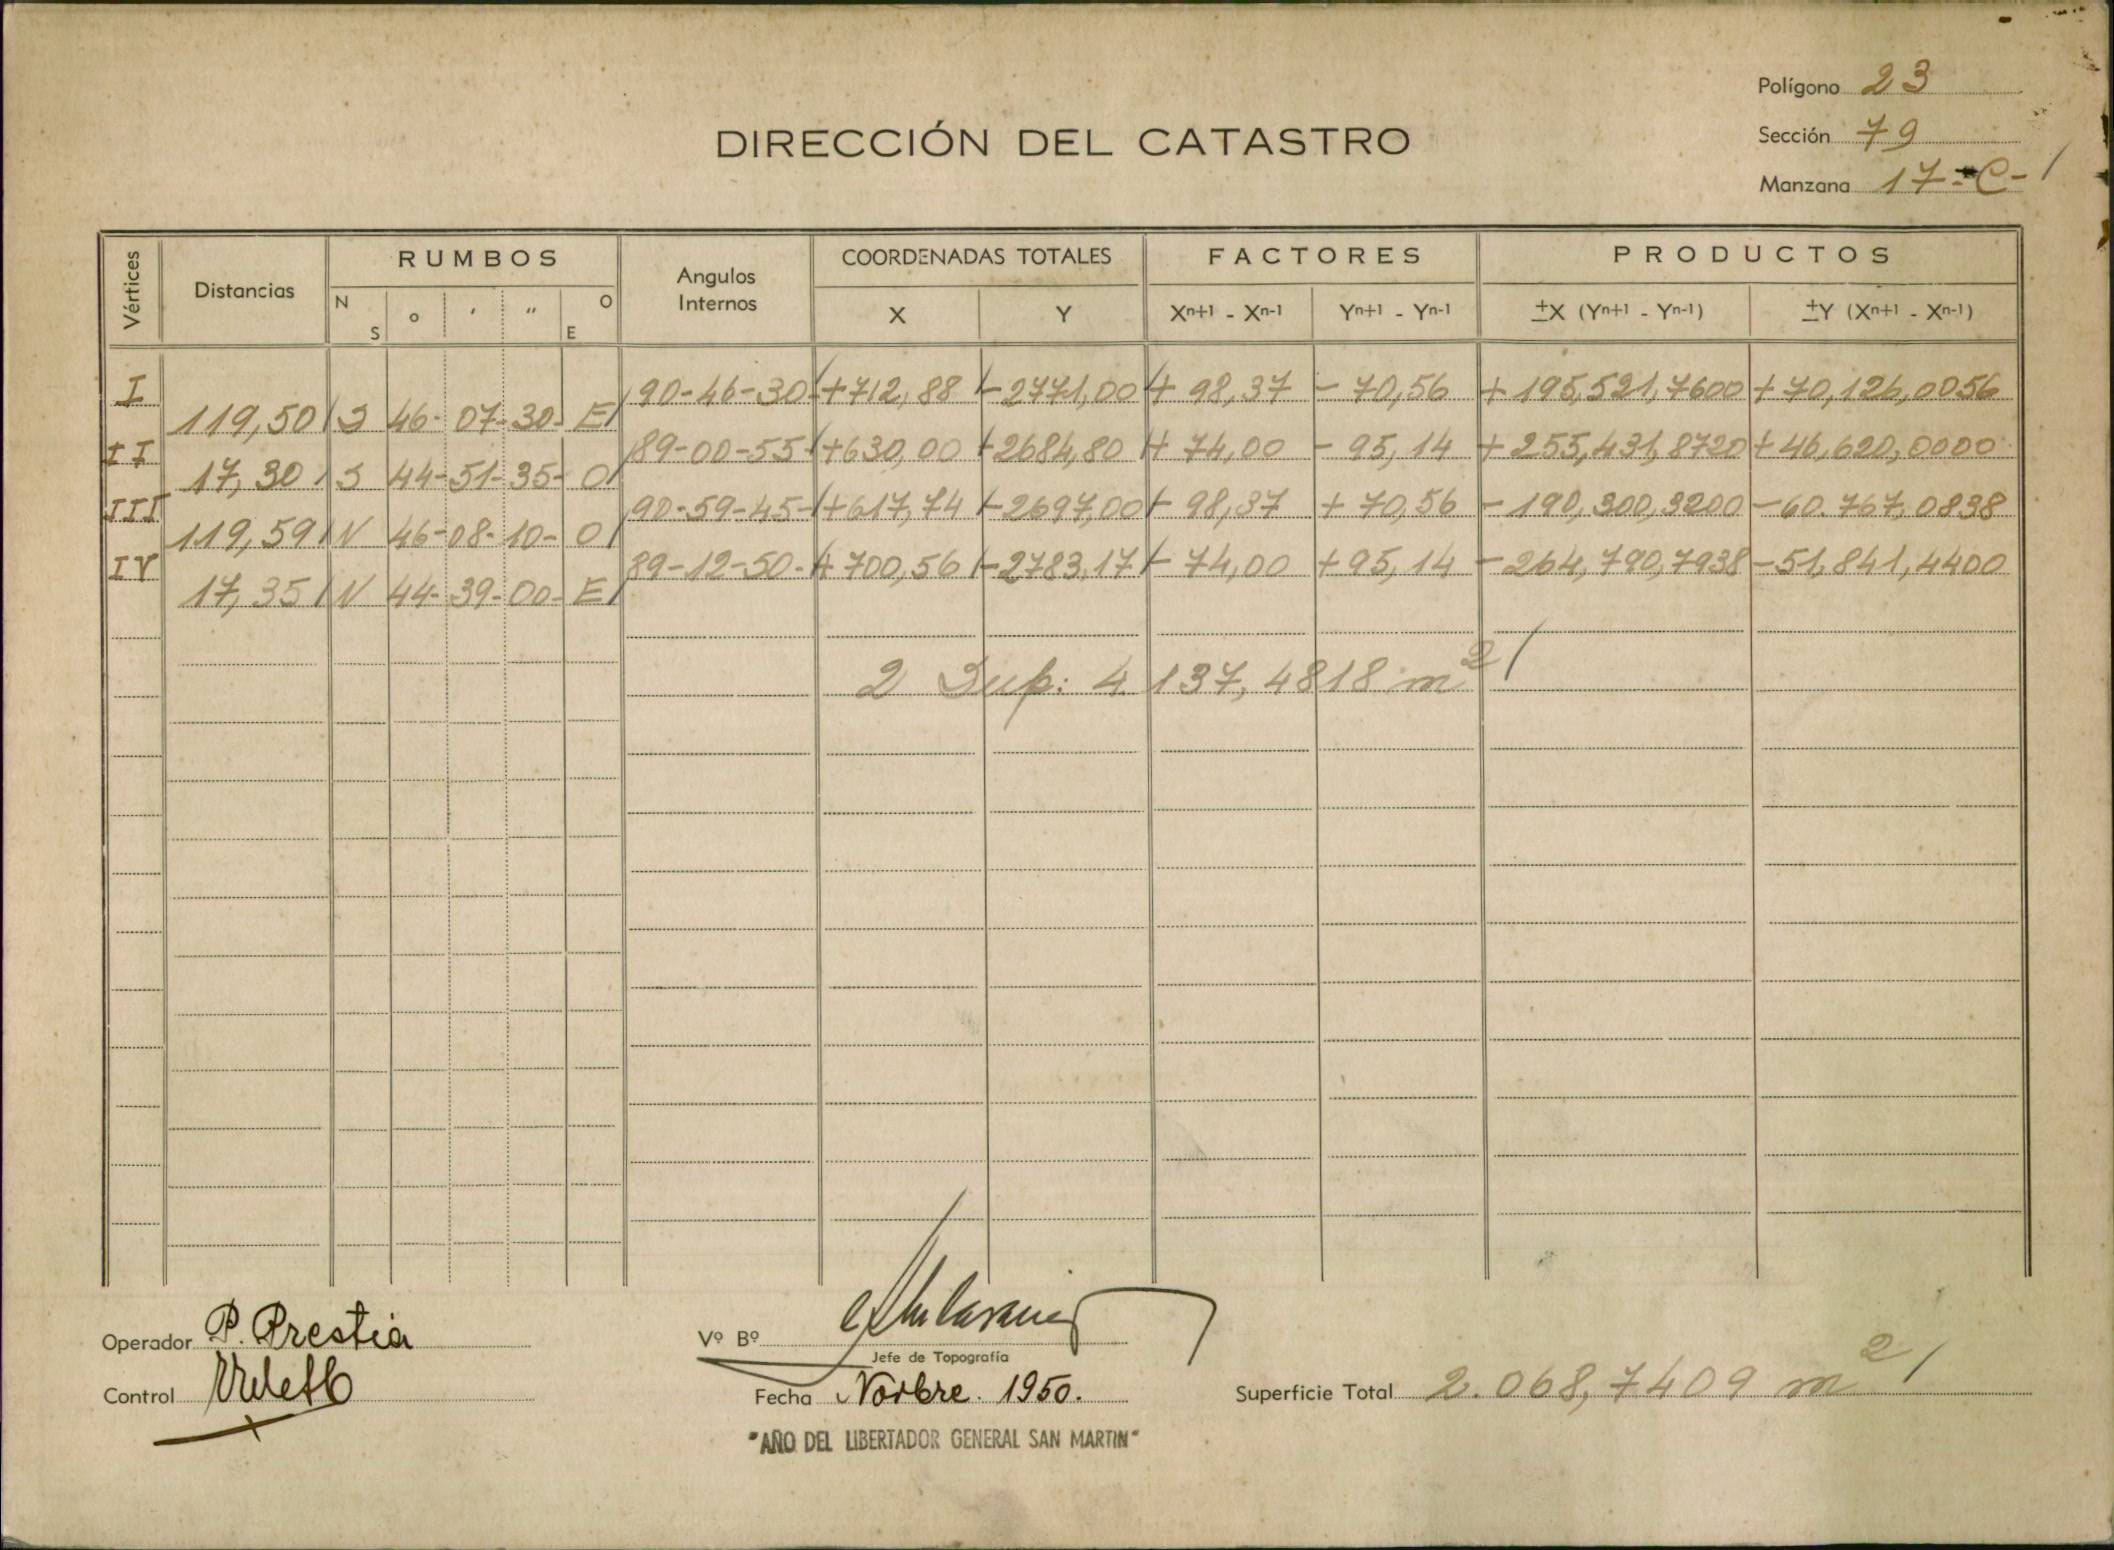 Polígono 23
DIRECCIÓN DEL CATASTRO
Sección 79
Manzana 17-C-
Vértices Distancias RUMBOS N S ° ' " O E Angulos Internos COORDENADAS TOTALES X Y FACTORES Xn+1 - Xn-1 Yn+1 - Yn-1 PRODUCTOS ±X (Yn+1 - Yn-1) ±Y (Xn+1 - Xn-1)
I 90-46-30- +712,88 -2771,00 + 98,37 - 70,56 + 195,521,7600 + 70,126,0056
119,50 S 46- 07- 30- E
II 89-00-55 +630,00 -2684,80 + 74,00 - 95,14 + 255,431,8720 + 46,620,0000
17,30 S 44- 51- 35- O
III 90-59-45- +617,74 -2697,00 - 98,37 + 70,56 - 190,300,3200 -60.767,0838
119,59 N 46- 08- 10- O
IV 89-12-50- +700,56 -2783,17 - 74,00 +95,14 -264,790,7938 -51,841,4400
17,35 N 44- 39- 00- E
2 Sup: 4.137,4818 m2
Operador P. Prestia
Vº Bº
Jefe de Topografía
Control
Fecha Novbre. 1950.
Superficie Total 2.068,7409 m2
"AÑO DEL LIBERTADOR GENERAL SAN MARTIN"